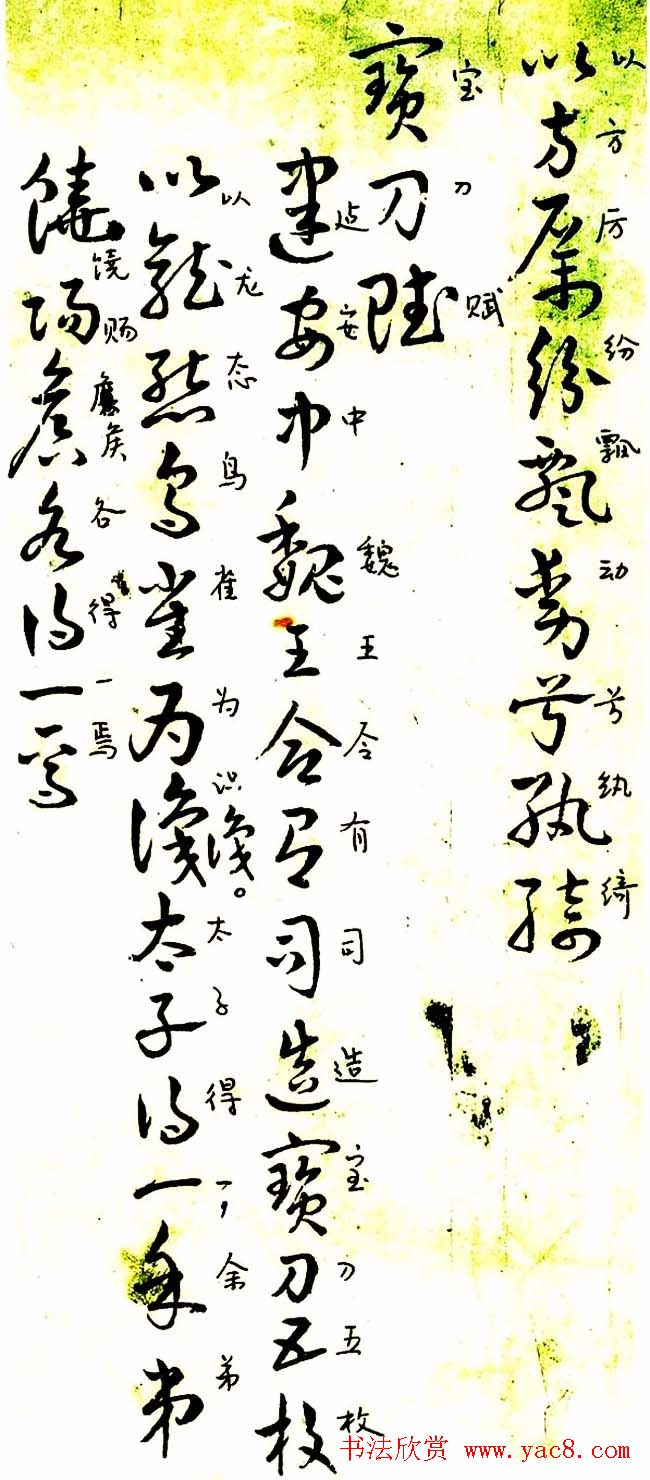 以方厉纷飘动兮纨绮
以方厉纷飘动兮纨绮
寶刀赋
宝刀赋
建安中魏王令有司造寶刀五枚
建安中魏王令有司造宝刀五枚
以龍態鳥雀为識太子得一余弟
以龙态鸟雀为识。太子得一，余弟
饒
饶赐
侯各得一焉
各得一焉
书法欣赏 www.yac8.com